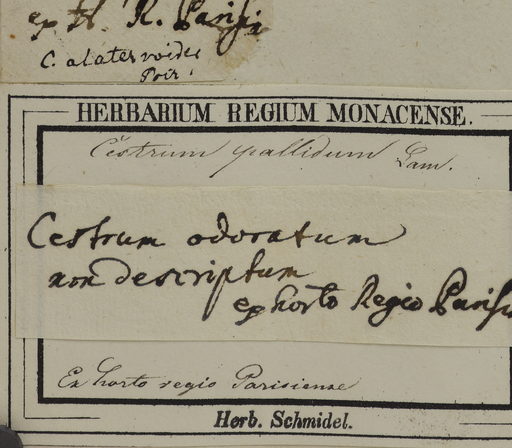 ex H. R. Parisin
C. alaternoides
Poir.
HERBARIUM REGIUM MONACENSE.
Cestrum pallidum Lam.
Cestrum odoratum
non descriptum
ex horto Regio Parisin
Ex horto regio Parisiense
Herb. Schmidel.